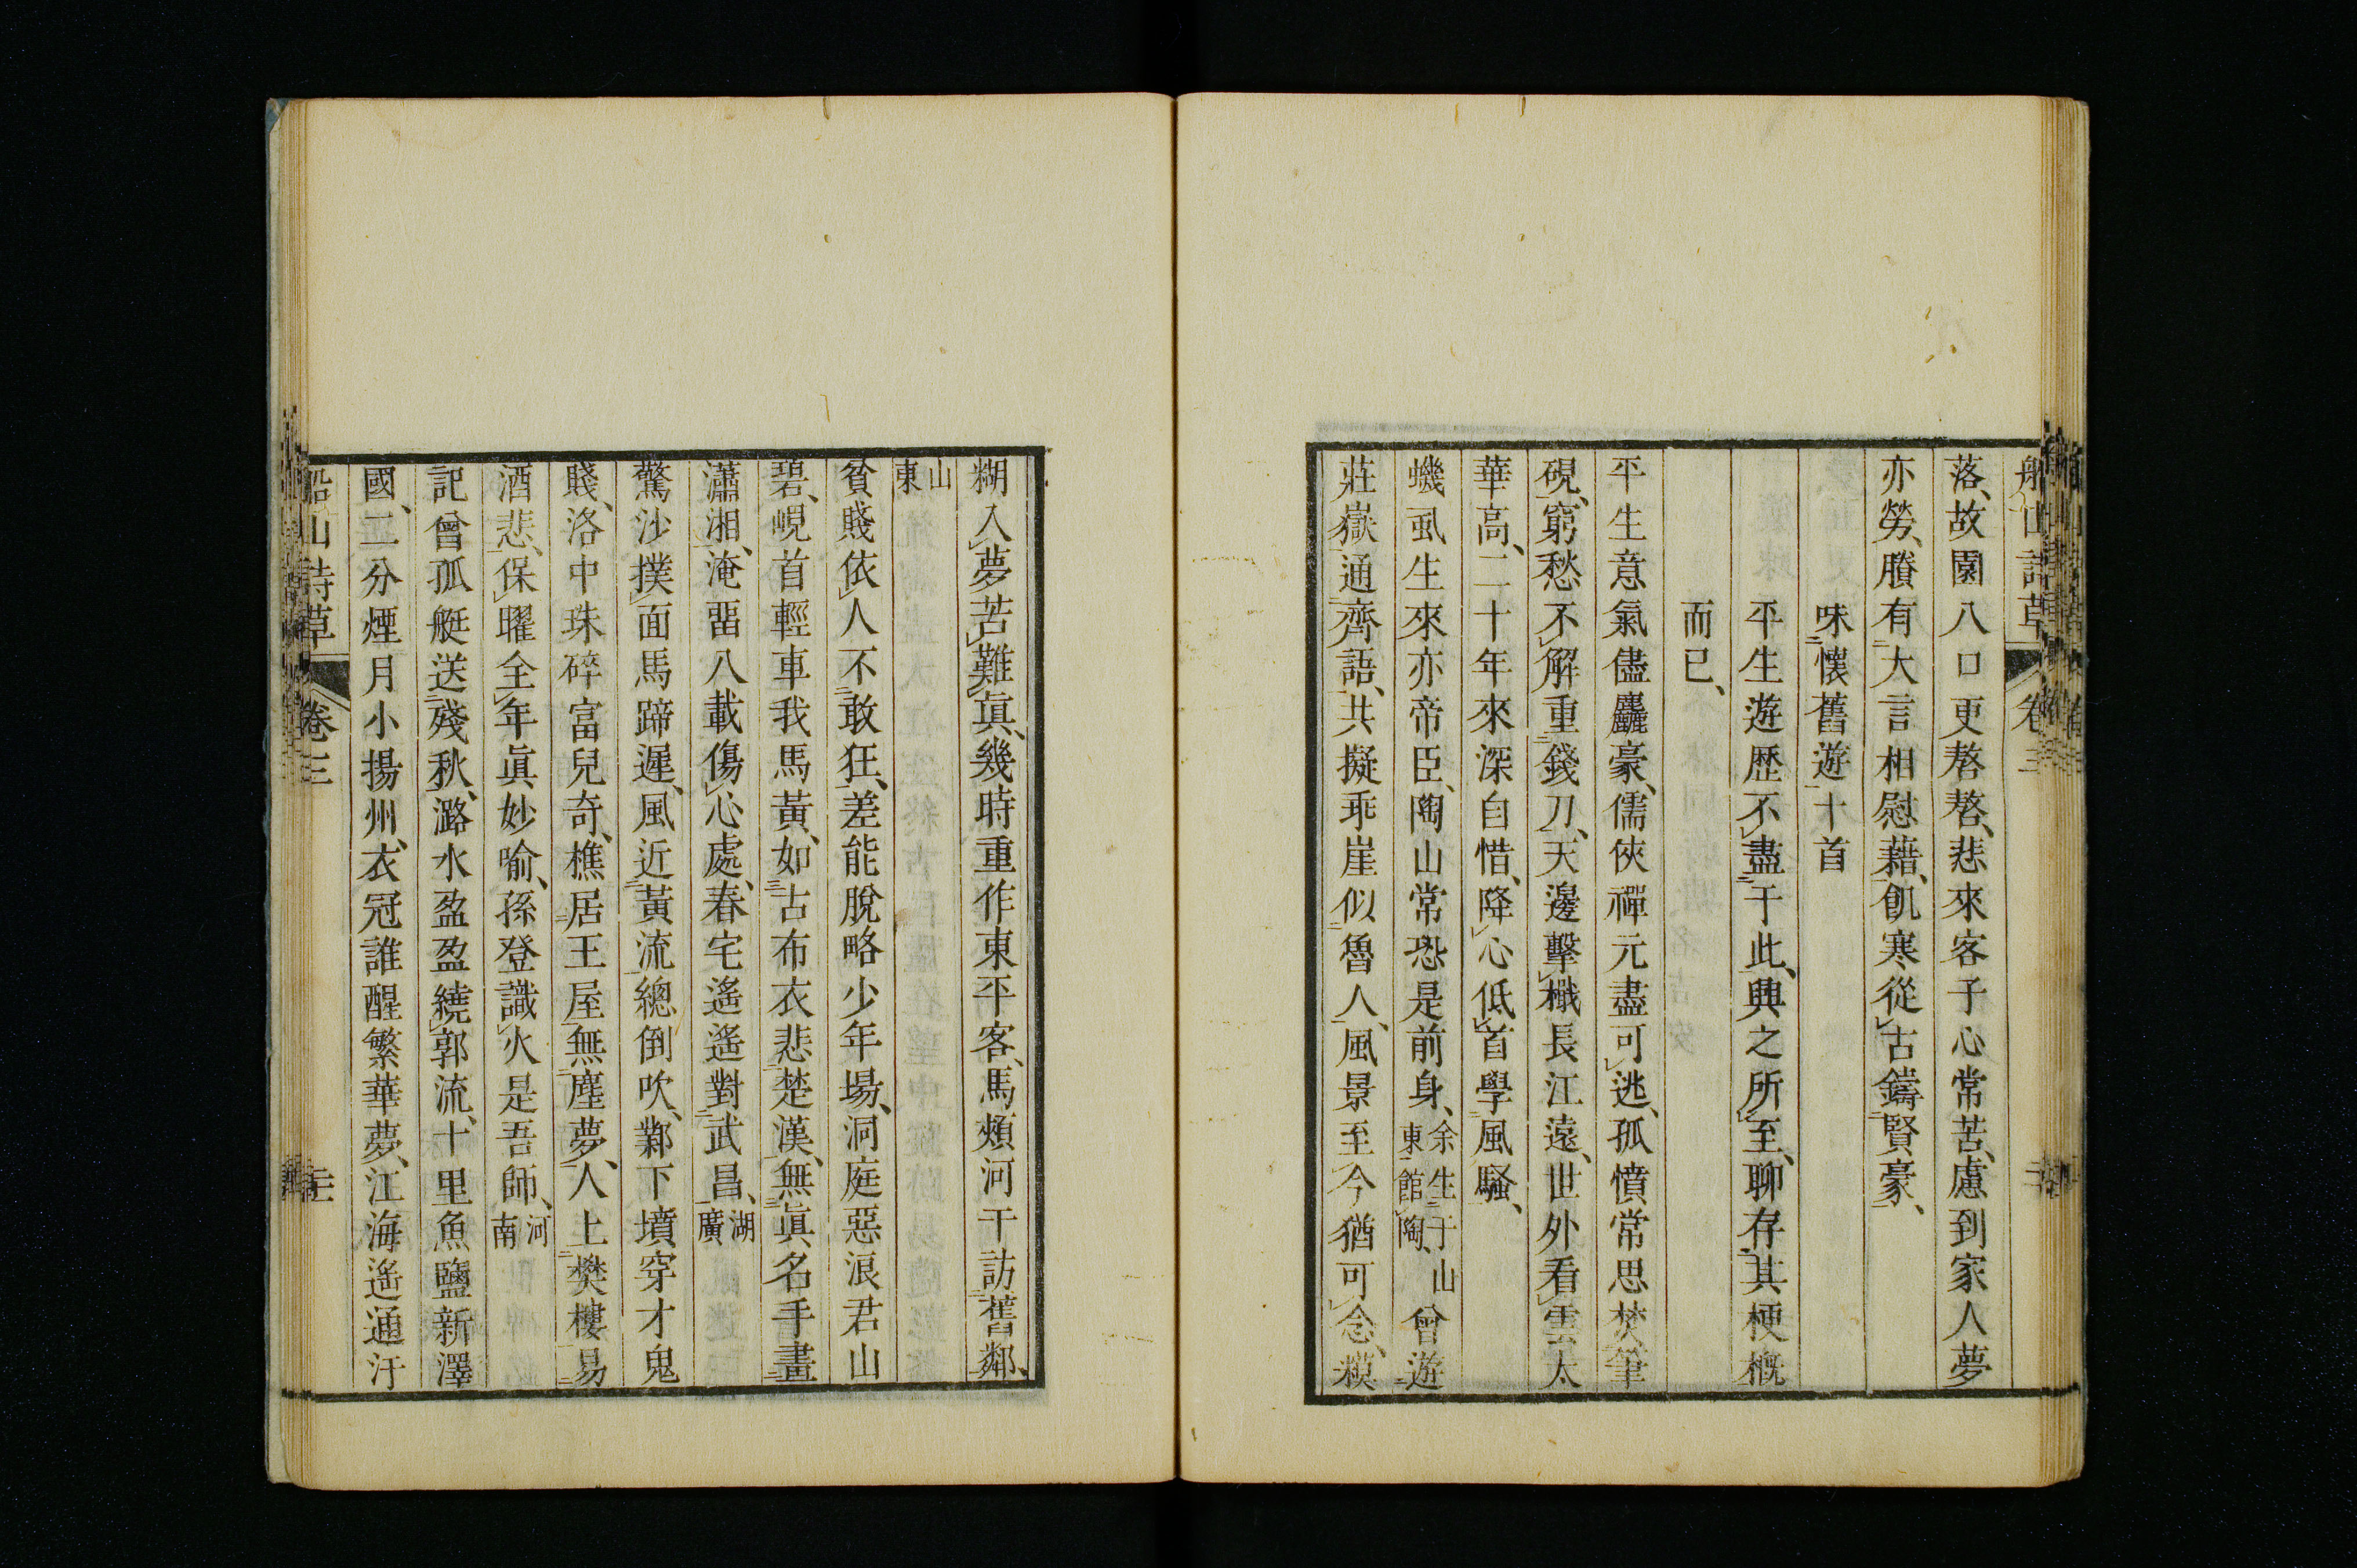 船山詩草 卷三
落、故園八口更嗸嗸、悲來客子心常苦、慮到家人夢
亦勞、賸有大言相慰藉、飢寒從古鑄賢豪、
味懷舊遊十首
平生遊歷不盡于此、興之所至、聊存其梗概
而已、
平生意氣儘麤豪、儒俠禪元盡可逃、孤憤常思焚筆
硯、窮愁不解重錢刀、天邊擊檝長江遠、世外看雲太
華高、二十年來深自惜、降心低首學風騷、
蟣虱生來亦帝臣、陶山常恐是前身、余生于山東館陶、曾遊
莊嶽通齊語、共擬乖崖似魯人、風景至今猶可念、糢
糊入夢苦難眞、幾時重作東平客、馬頰河干訪舊鄰、
山東
貧賤依人不敢狂、差能脫略少年場、洞庭惡浪君山
碧、峴首輕車我馬黃、如古布衣悲楚漢、無眞名手畫
瀟湘、淹畱八載傷心處、春宅遙遙對武昌、湖廣
驚沙撲面馬蹄遲、風近黃流總倒吹、鄴下墳穿才鬼
賤、洛中珠碎富兒奇、樵居王屋無塵夢、人上樊樓易
酒悲、保曜全年眞妙喻、孫登識火是吾師、河南
記曾孤艇送殘秋、潞水盈盈繞郭流、十里魚鹽新澤
國、二分煙月小揚州、衣冠誰醒繁華夢、江海遙通汙
船山詩草 卷三